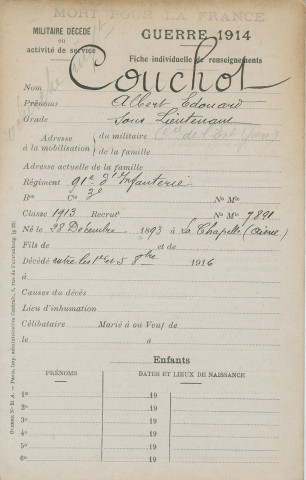 MORT POUR LA FRANCE
MILITAIRE DÉCÉDÉ
ou
activité de service
GUERRE 1914
Fiche individuelle de renseignements
Nom Couchot
Prénoms Albert Edouard
Grade Sous Lieutenant
Adresse à la mobilisation { du militaire
de la famille
Adresse actuelle de la famille
Régiment 91e d'Infanterie
Bon Cie 3e No Mle
Classe 1913 Recrut No Mle 7891
Né le 28 Décembre 1893 à La Chapelle (Aisne)
Fils de et de
Décédé entre les 1er et 5 8bre 1916
à
Causes du décès
Lieu d'inhumation
Célibataire Marié à ou Veuf de
le à
Enfants
PRÉNOMS DATES ET LIEUX DE NAISSANCE
1o 19
2o 19
3o 19
4o 19
5o 19
6o 19